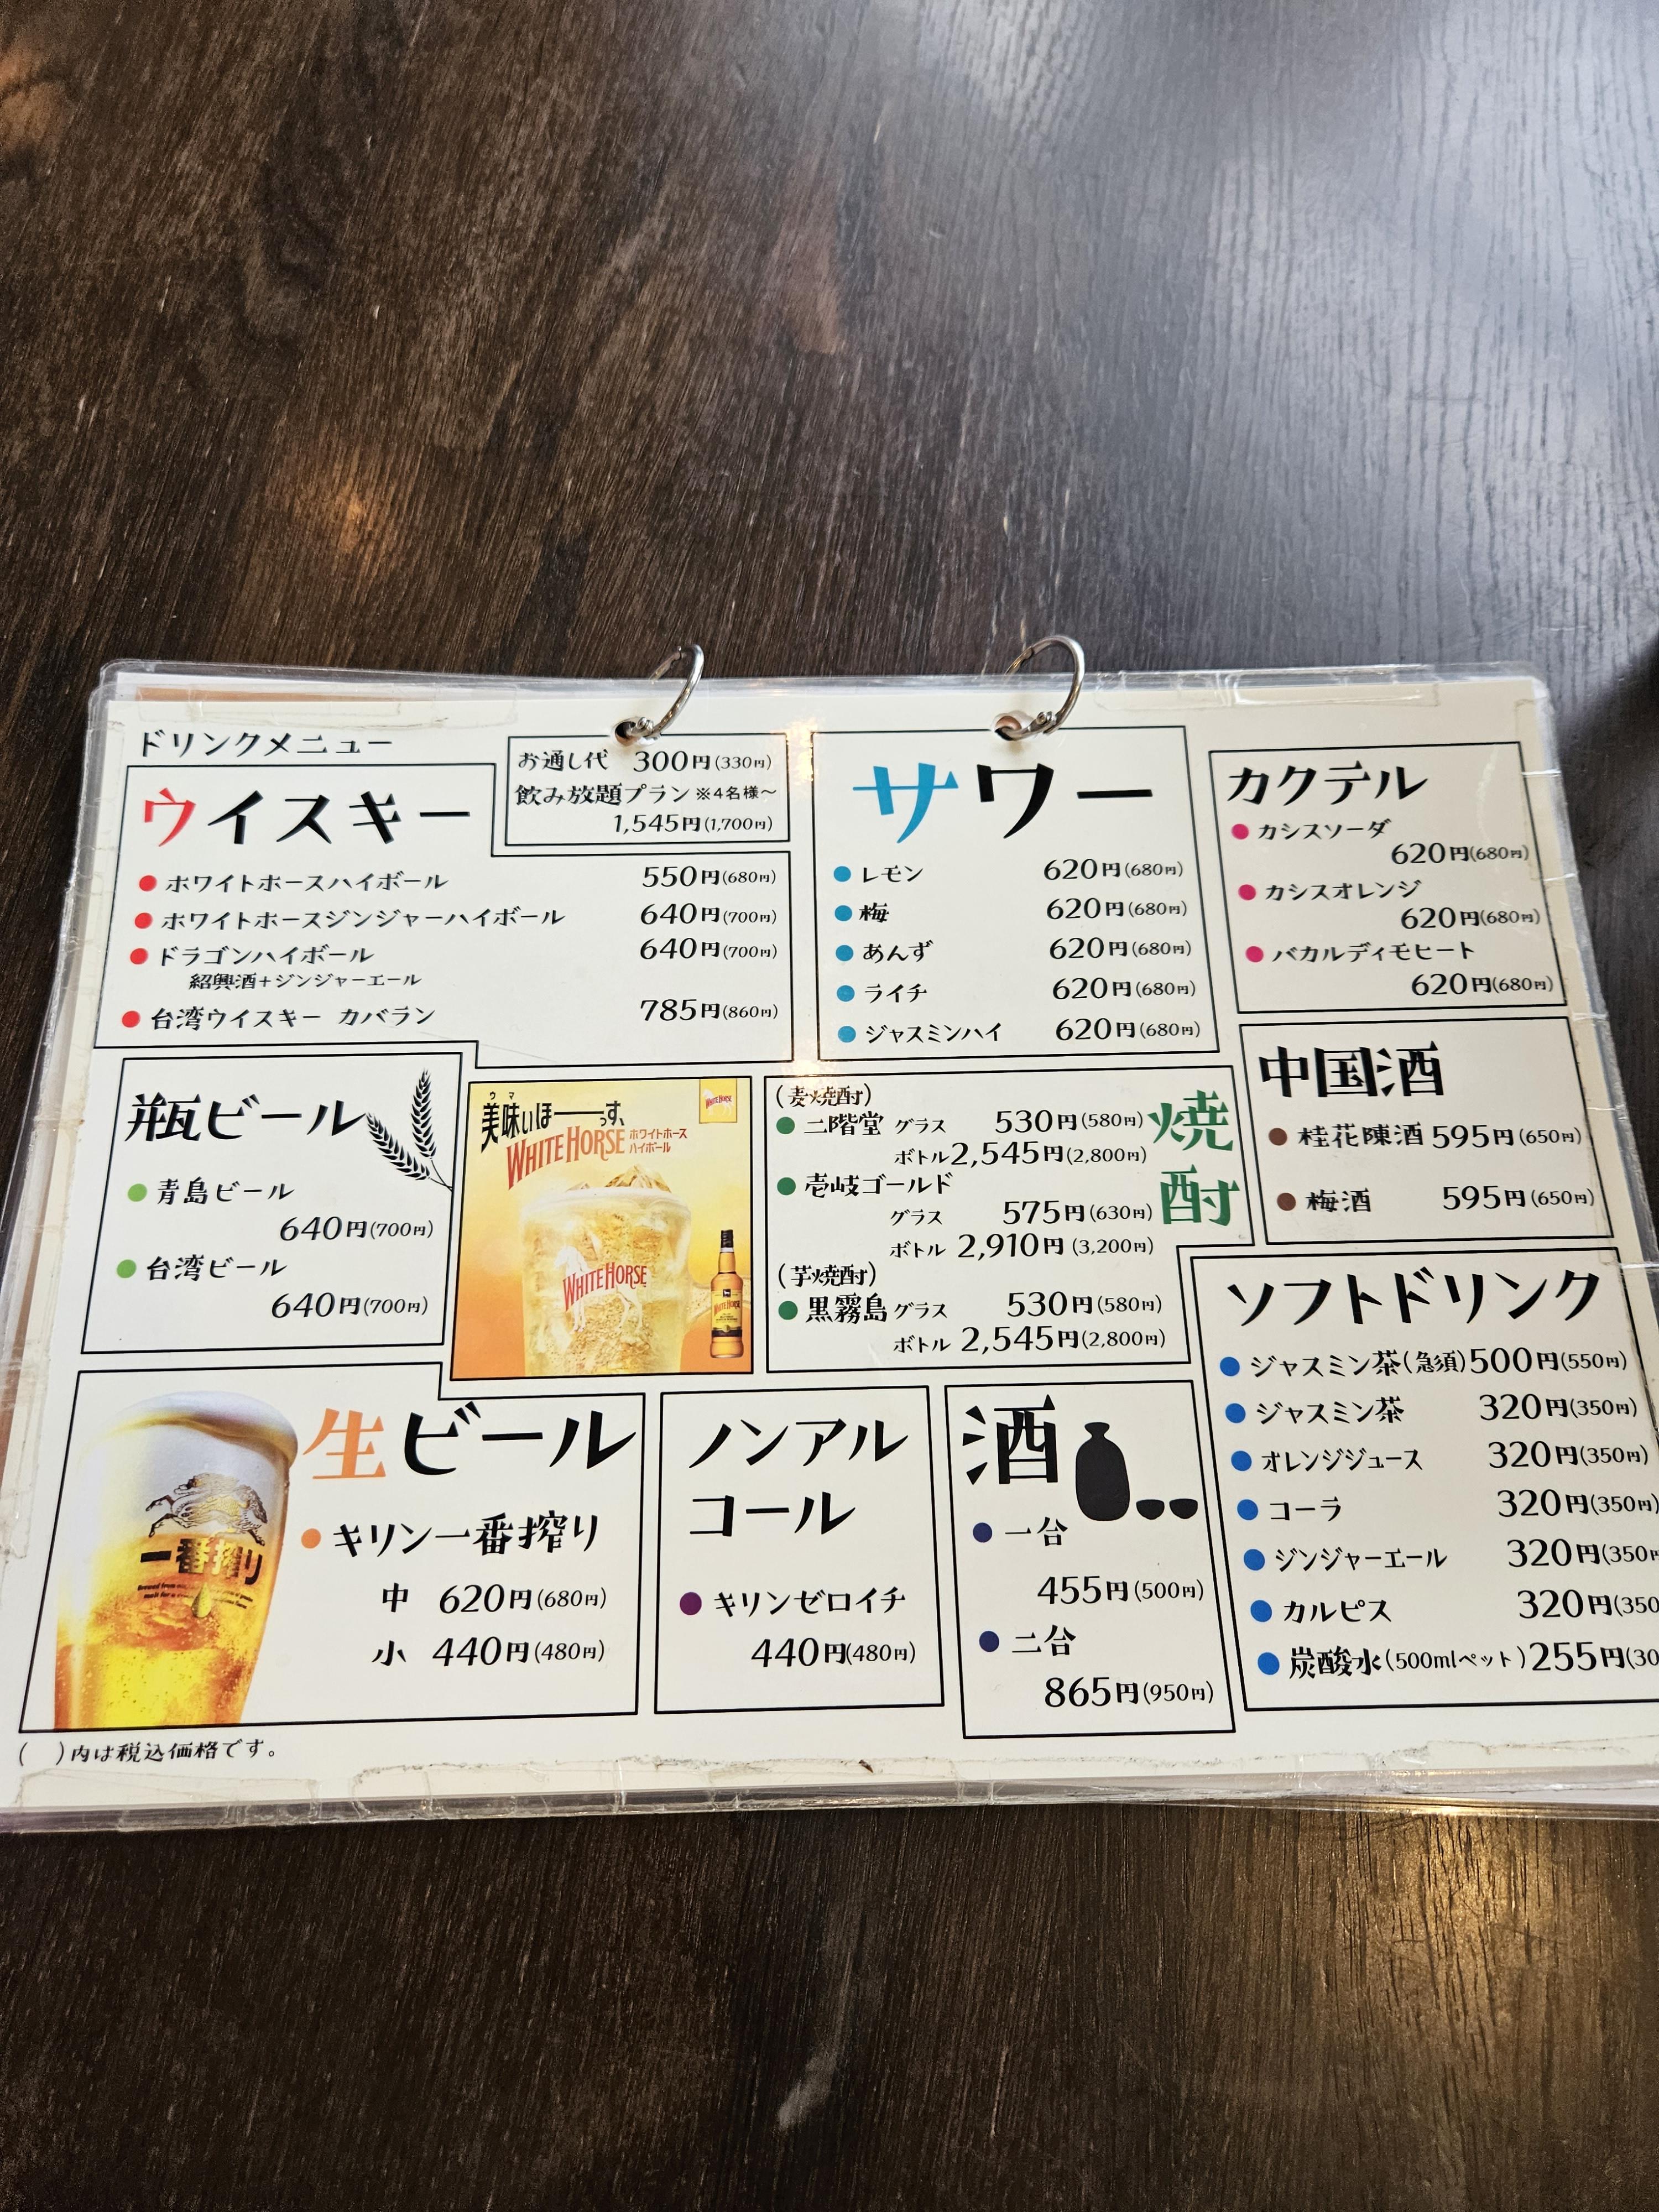 ドリンクメニュー
ウイスキー
ホワイトホースハイボール 550円(680円)
ホワイトホースジンジャーハイボール 640円(700円)
ドラゴンハイボール 640円(700円)
紹興酒+ジンジャーエール
台湾ウイスキー カバラン 785円(860円)
お通し代 300円(330円)
飲み放題プラン ※4名様～
1,545円(1,700円)
サワー
レモン 620円(680円)
梅 620円(680円)
あんず 620円(680円)
ライチ 620円(680円)
ジャスミンハイ 620円(680円)
カクテル
カシスソーダ
620円(680円)
カシスオレンジ
620円(680円)
バカルディモヒート
620円(680円)
瓶ビール
青島ビール
640円(700円)
台湾ビール
640円(700円)
ウマ
美味いほーーっす、
WHITE HORSE
ホワイトホース
ハイボール
WHITE HORSE
焼酎
(麦焼酎)
二階堂 グラス 530円(580円)
ボトル 2,545円(2,800円)
壱岐ゴールド
グラス 575円(630円)
ボトル 2,910円(3,200円)
(芋焼酎)
黒霧島 グラス 530円(580円)
ボトル 2,545円(2,800円)
中国酒
桂花陳酒 595円(650円)
梅酒 595円(650円)
生ビール
キリン一番搾り
中 620円(680円)
小 440円(480円)
一番搾り
ノンアル
コール
キリンゼロイチ
440円(480円)
酒
一台
455円(500円)
二台
865円(950円)
ソフトドリンク
ジャスミン茶(急須) 500円(550円)
ジャスミン茶 320円(350円)
オレンジジュース 320円(350円)
コーラ 320円(350円)
ジンジャーエール 320円(350円
カルピス 320円(350
炭酸水(500mlペット) 255円(30
( )内は税込価格です。